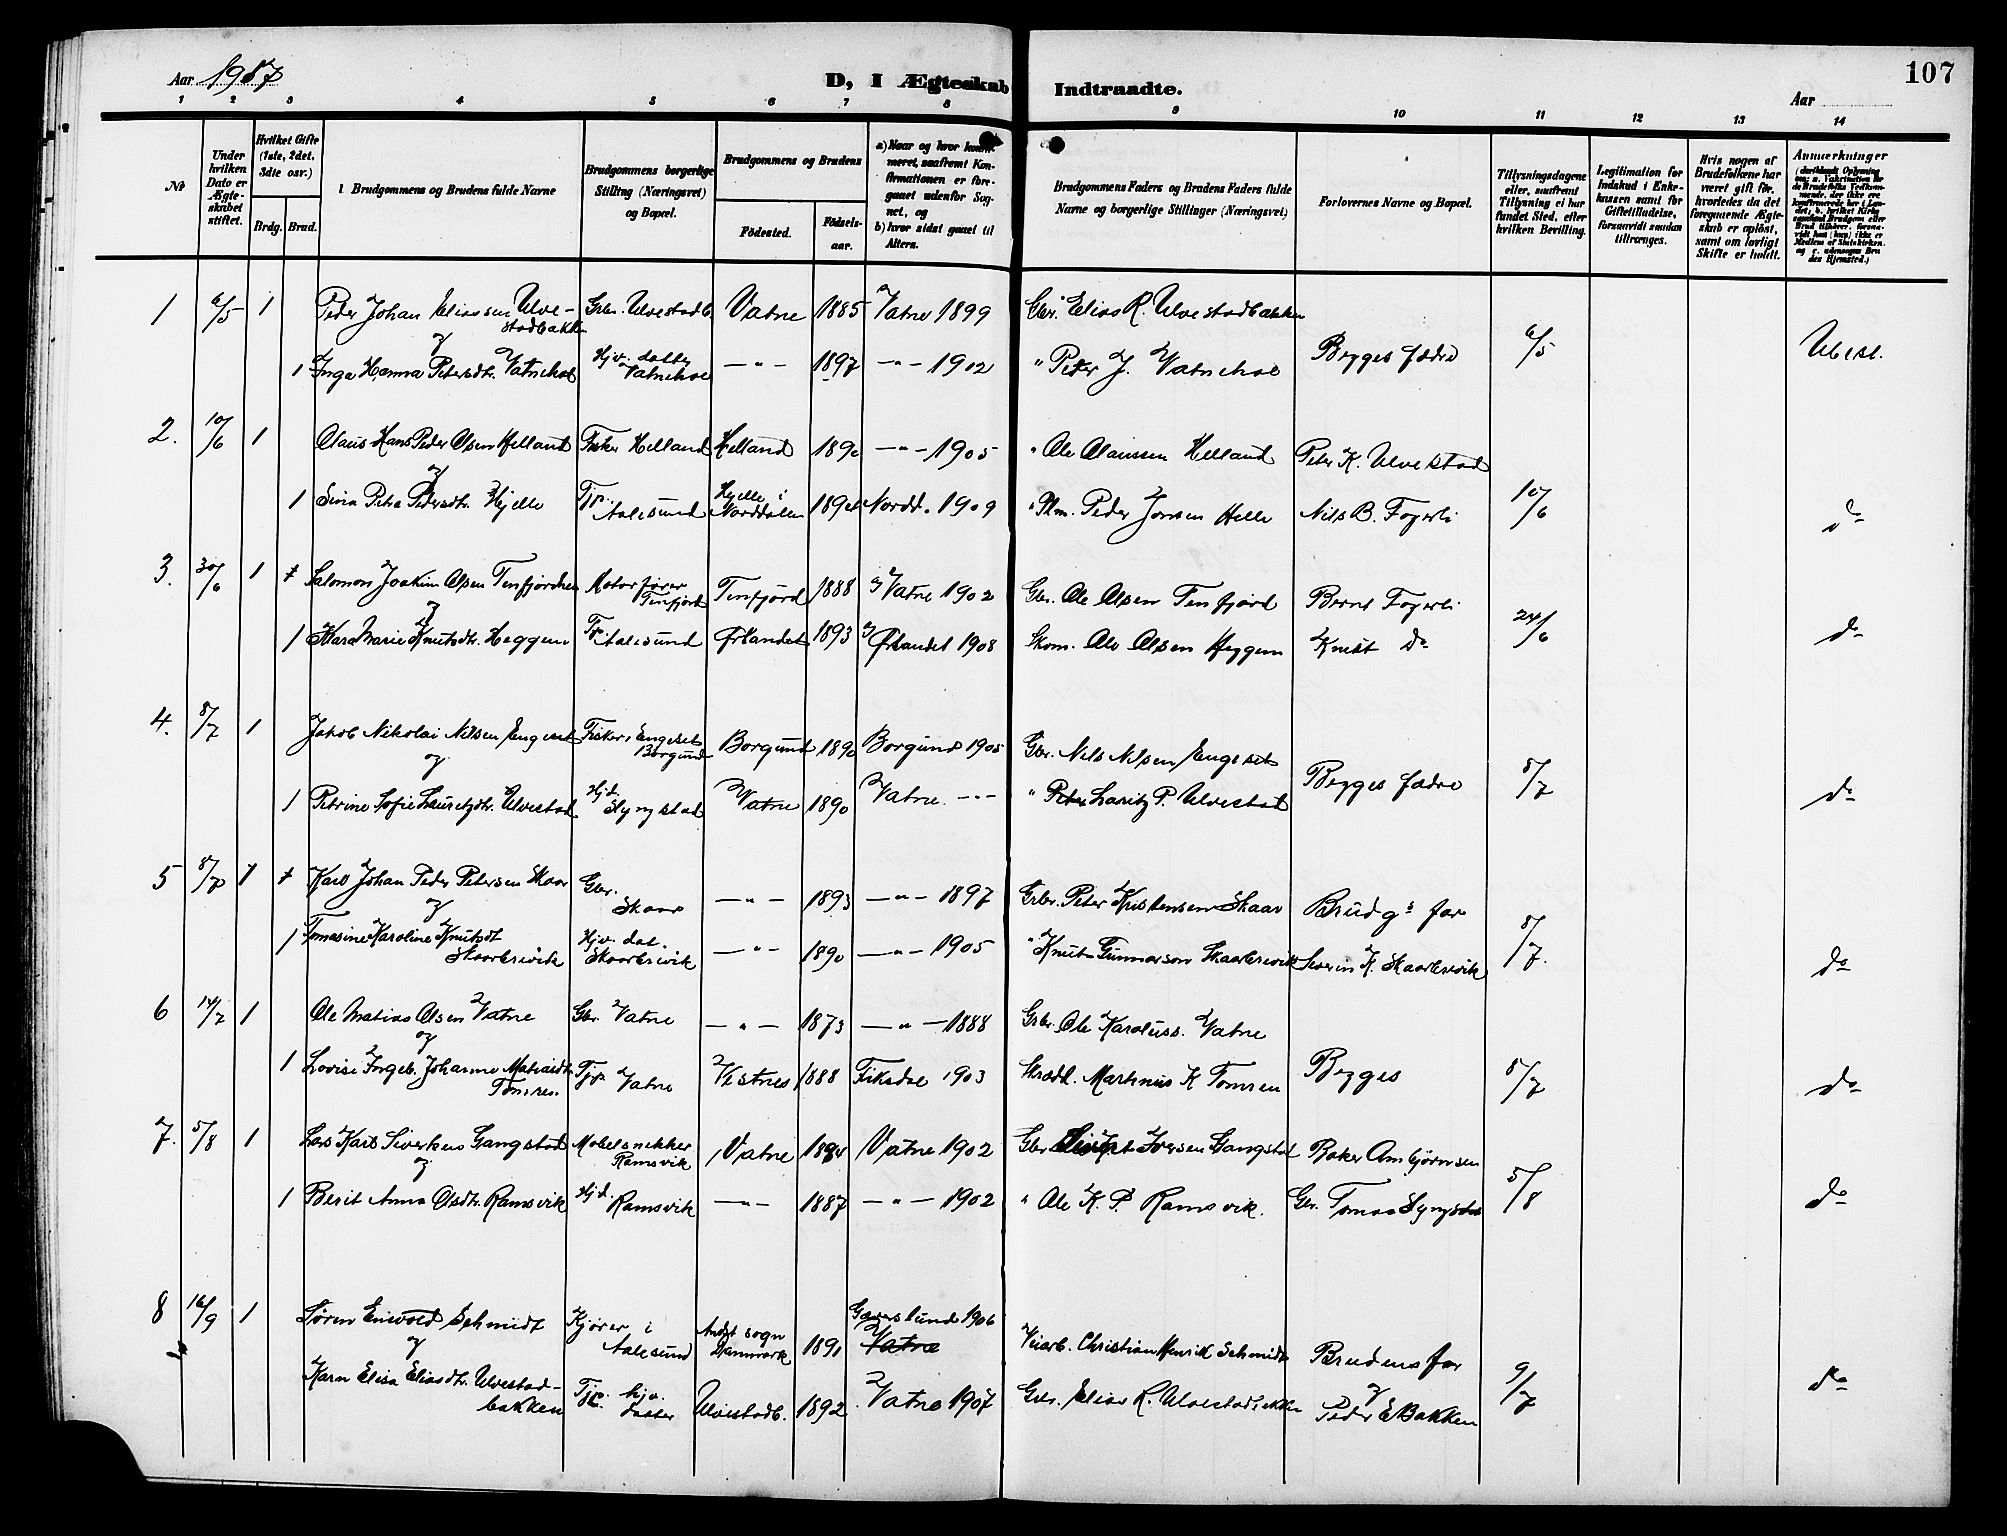 107
Aar 1917
D, I Ægteskab Indtraadte.
Aar
1 2 3 4 5 6 7 8 9 10 11 12 13 14
№
Under hvilken Dato er Ægteskabet stiftet.
Hvilket Gifte (1ste, 2det, 3die osv.)
Brdg. Brud.
Brudgommens og Brudens fulde Navne
Brudgommens borgerlige Stilling (Næringsvei) og Bopæl.
Brudgommens og Brudens
Födested. Födselsaar.
a) Naar og hvor konfirmeret, saafremt Konfirmationen er foregaaet udenfor Sognet, og
b) hvor sidst gaaet til Alters.
Brudgommens Faders og Brudens Faders fulde Navne og borgerlige Stillinger (Næringsvei)
Forlovernes Navne og Bopæl.
Tillysningsdagene eller, saafremt Tillysning ei har fundet Sted, efter hvilken Bevilling.
Legitimation for Indskud i Enkekassen samt for Giftetilladelse, forsaavidt saadan tiltrænges.
Hvis nogen af Brudefolkene har været gift för, hvorledes da det foregaaende Ægteskab er oplöst, samt om lovligt Skifte er holdt.
Anmærkninger
1 6/5 1 Peder Johan Eliassen Ulvestadbakken Gbr. Ulvestadb. Vatne 1885 Vatne 1899 Gbr. Elias R. Ulvestadbakken
og
1 Inga Hanna Petersdtr. Vatnehol Hjv. datter Vatnehol -"- 1897 -"- 1902 " Peter J. Vatnehol Begges fædre 6/5
2. 10/6 1 Claus Hans Peder Olsen Helland Fisker Helland Helland 1890 -"- 1905 " Ole Claussen Helland Peter K. Ulvestad
og
1 Sina Petra Pedersdtr. Hjelle Tjp. Aalesund Hjelle i Norddalen Nordd. 1909 Peder Jonsen Helle Nils B. Fogerli 10/6 do
3. 30/6 1 Salomon Joakim Olsen Tenfjorden Motorfører Tenfjord Tenfjord 1888 Vatne 1902 Gbr. Ole Olsen Tenfjord Bernt Fogerli
og
1 Kara Marie Knutsdtr. Heggem Tp. i Aalesund Ørlandet 1893 Ørlandet 1908 Skom. Ole Olsen Heggem Knut do 24/6 do
4. 8/7 1 Jakob Nikolai Nilsen Engeset Fisker, Engeset Borgund Borgund 1890 Borgund 1905 Gbr. Nils Nilsen Engeset
og
1 Petrine Sofie Lauritzdtr. Ulvestad Hjd. Slyngstad Vatne 1890 Vatne -"- " Lauritz P. Ulvestad Begges fædre 8/7 do
5 8/7 1 Karl Johan Peder Petersen Skaar Gbr. Skaar -"- 1893 -"- 1897 Gbr. Peter Kristensen Skaar Brudgs far
og
1 Tomasine Karoline Knutsdt Skaarbrevik Hjv. dat. Skaarbrevik -"- 1890 -"- 1905 " Knut Gunnarson Skaarbrevik Severin K. Skaarbrevik 8/7. do
6 14/7 1 Ole Matias Olsen Vatne Gbr. Vatne -"- 1873 -"- 1888 Gbr. Ole Karoluss. Vatne
og
1 Lovise Ingeb. Johanne Matiasdtr Tomren. Tjp. Vatne Vestnes 1888 Fiksdal 1903 Skrædd. Martinus K Tomren Begges 8/7 do
7. 5/8 1 Lars Karl Sivertsen Gangstad Møbelsnekker Ramsvik Vatne Vatne 1902 Gbr. Sivert Iversen Gangstad Baker Ambjørnsen
og
1 Berit Anna Olsdtr. Ramsvik Hjd. Ramsvik -"- 1887 -"- 1902 " Ole K. P. Ramsvik. Gbr. Tomas Slyngstad 5/8 do
8 16/9 1 Søren Einvold Schmidt Kjører i Aalesund Andst sogn Danmark 1891 Gaverslund 1906 Vatne Veiarb. Christian Henrik Schmidt Brudens far
og og
Karn Elisa Eliasdtr. Ulvestadbakken Tje. hjv. datter Ulvestadb. 1892 Vatne 1907 Gbr. Elias R. Ulvestadbakken Peder E Bakken 9/7 do